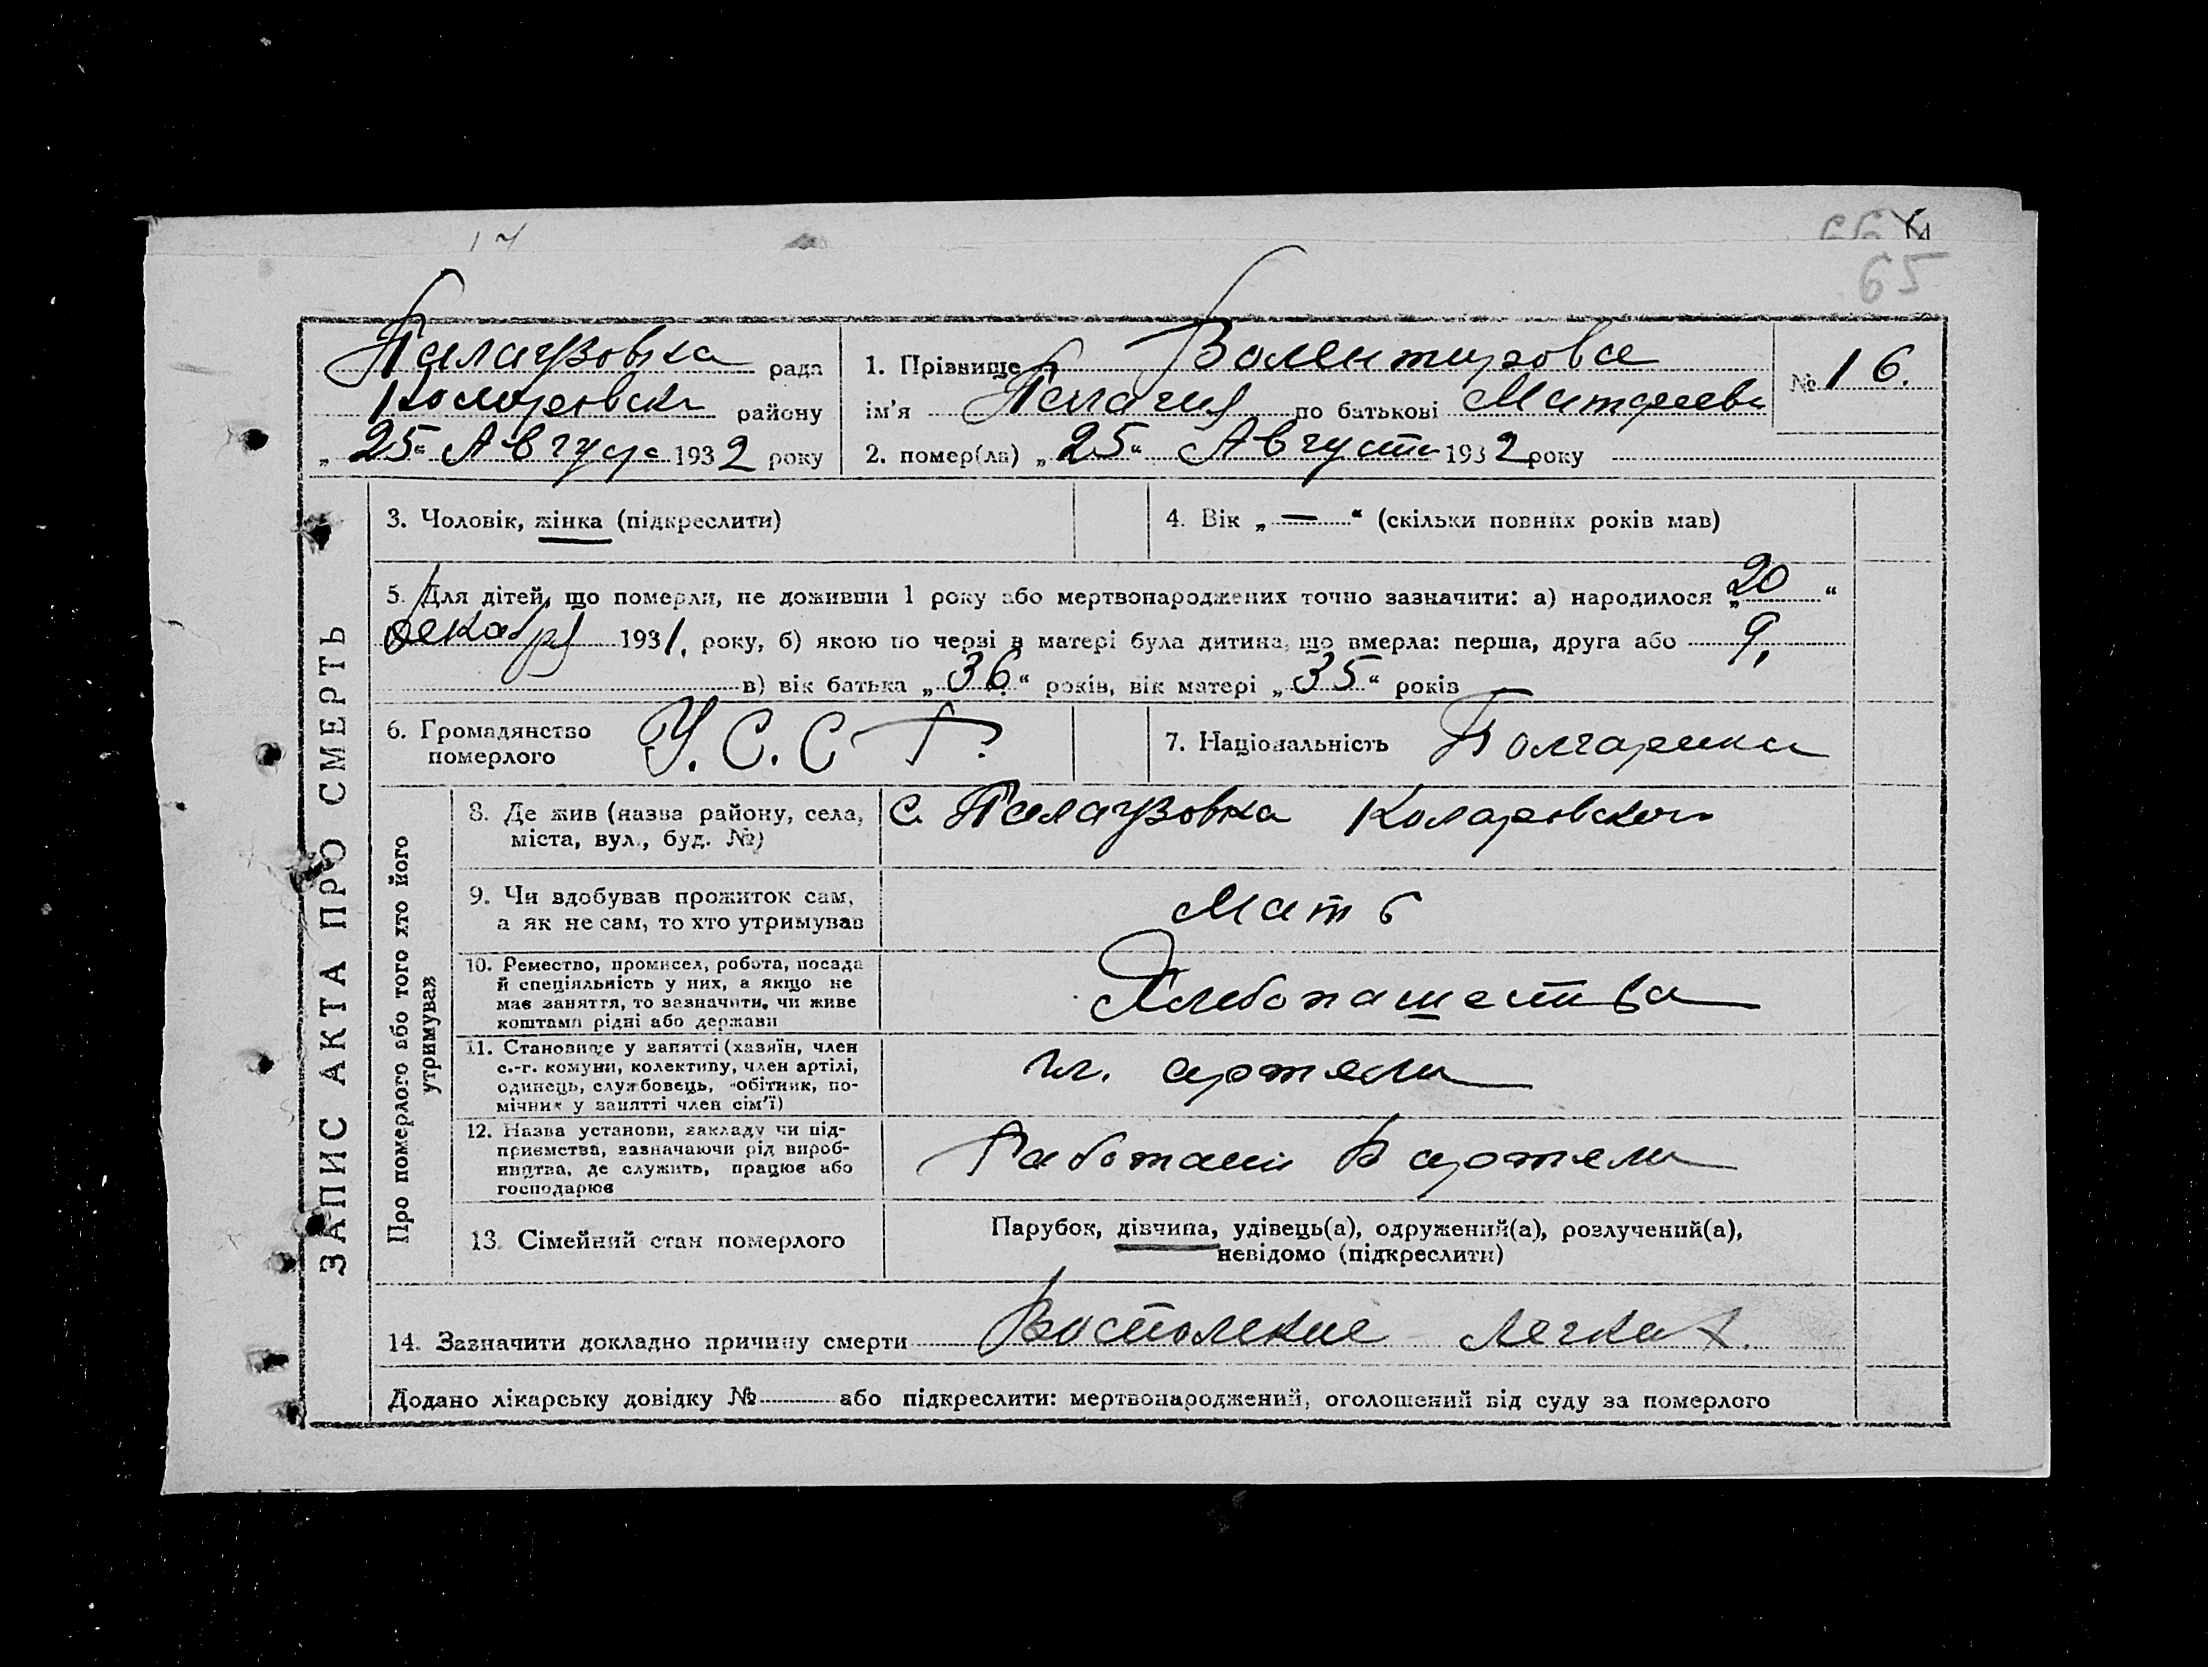 65
Палаузовка рада
Коларовск району
„25“ Августа 1932 року
1. Прізвище Волентирова
ім'я Пелагия по батькові Матфеевн
2. помер(ла) „25“ Августа 1932 року
№ 16.
ЗАПИС АКТА ПРО СМЕРТЬ
3. Чоловік, жінка (підкреслити)
4. Вік „—“ (скільки повних років мав)
5. Для дітей, що померли, не доживши 1 року або мертвонароджених точно зазначити: а) народилося „20“
декабря 1931. року, б) якою по черзі в матері була дитина, що вмерла: перша, друга або 9,
в) вік батька „36“ років, вік матері „35“ років
6. Громадянство
померлого У.С.С.Р.
7. Національність Болгарика
Про померлого або того хто його
утримував
8. Де жив (назва району, села,
міста, вул., буд. №)
с. Палаузовка Коларовского
9. Чи здобував прожиток сам,
а як не сам, то хто утримував
Мать
10. Ремество, промисел, робота, посада
й спеціяльність у них, а якщо не
має заняття, то зазначити, чи живе
коштами рідні або держави
Хлебопашества
11. Становище у занятті (хазяїн, член
с.-г. комуни, колективу, член артілі,
одинець, службовець, робітник, по-
мічник у занятті член сім'ї)
чл. артели
12. Назва установи, закладу чи під-
приємства, зазначаючи рід вироб-
ництва, де служить, працює або
господарює
Работает в артели
13. Сімейний стан померлого
Парубок, дівчина, удівець(а), одружений(а), розлучений(а),
невідомо (підкреслити)
14. Зазначити докладно причину смерти Воспoление легких.
Додано лікарську довідку № або підкреслити: мертвонароджений, оголошений від суду за померлого